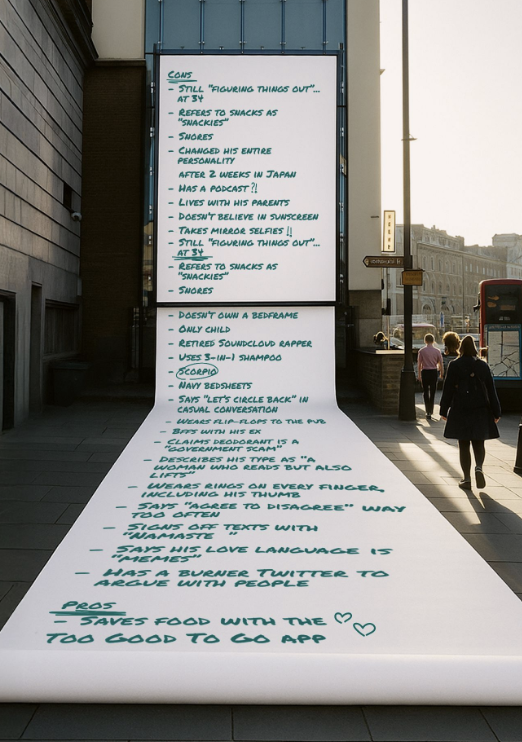 Cons
- Still "figuring things out"...
at 34
- Refers to snacks as
"snackies"
- Snores
- Changed his entire
personality
after 2 weeks in Japan
- Has a podcast?!
- Lives with his parents
- Doesn't believe in sunscreen
- Takes mirror selfies!!
- Still "figuring things out"...
at 34
- Refers to snacks as
"snackies"
- Snores
- Doesn't own a bedframe
- Only child
- Retired Soundcloud rapper
- Uses 3-in-1 shampoo
- Scorpio
- Navy bedsheets
- Says "let's circle back" in
casual conversation
- Wears flip-flops to the pub
- Bffs with his ex
- Claims deodorant is a
"government scam"
- Describes his type as "a
woman who reads but also
lifts"
- Wears rings on every finger,
including his thumb
- Says "agree to disagree" way
too often
- Signs off texts with
"Namaste "
- Says his love language is
"memes"
- Has a burner Twitter to
argue with people
Pros
- Saves food with the
Too Good To Go app